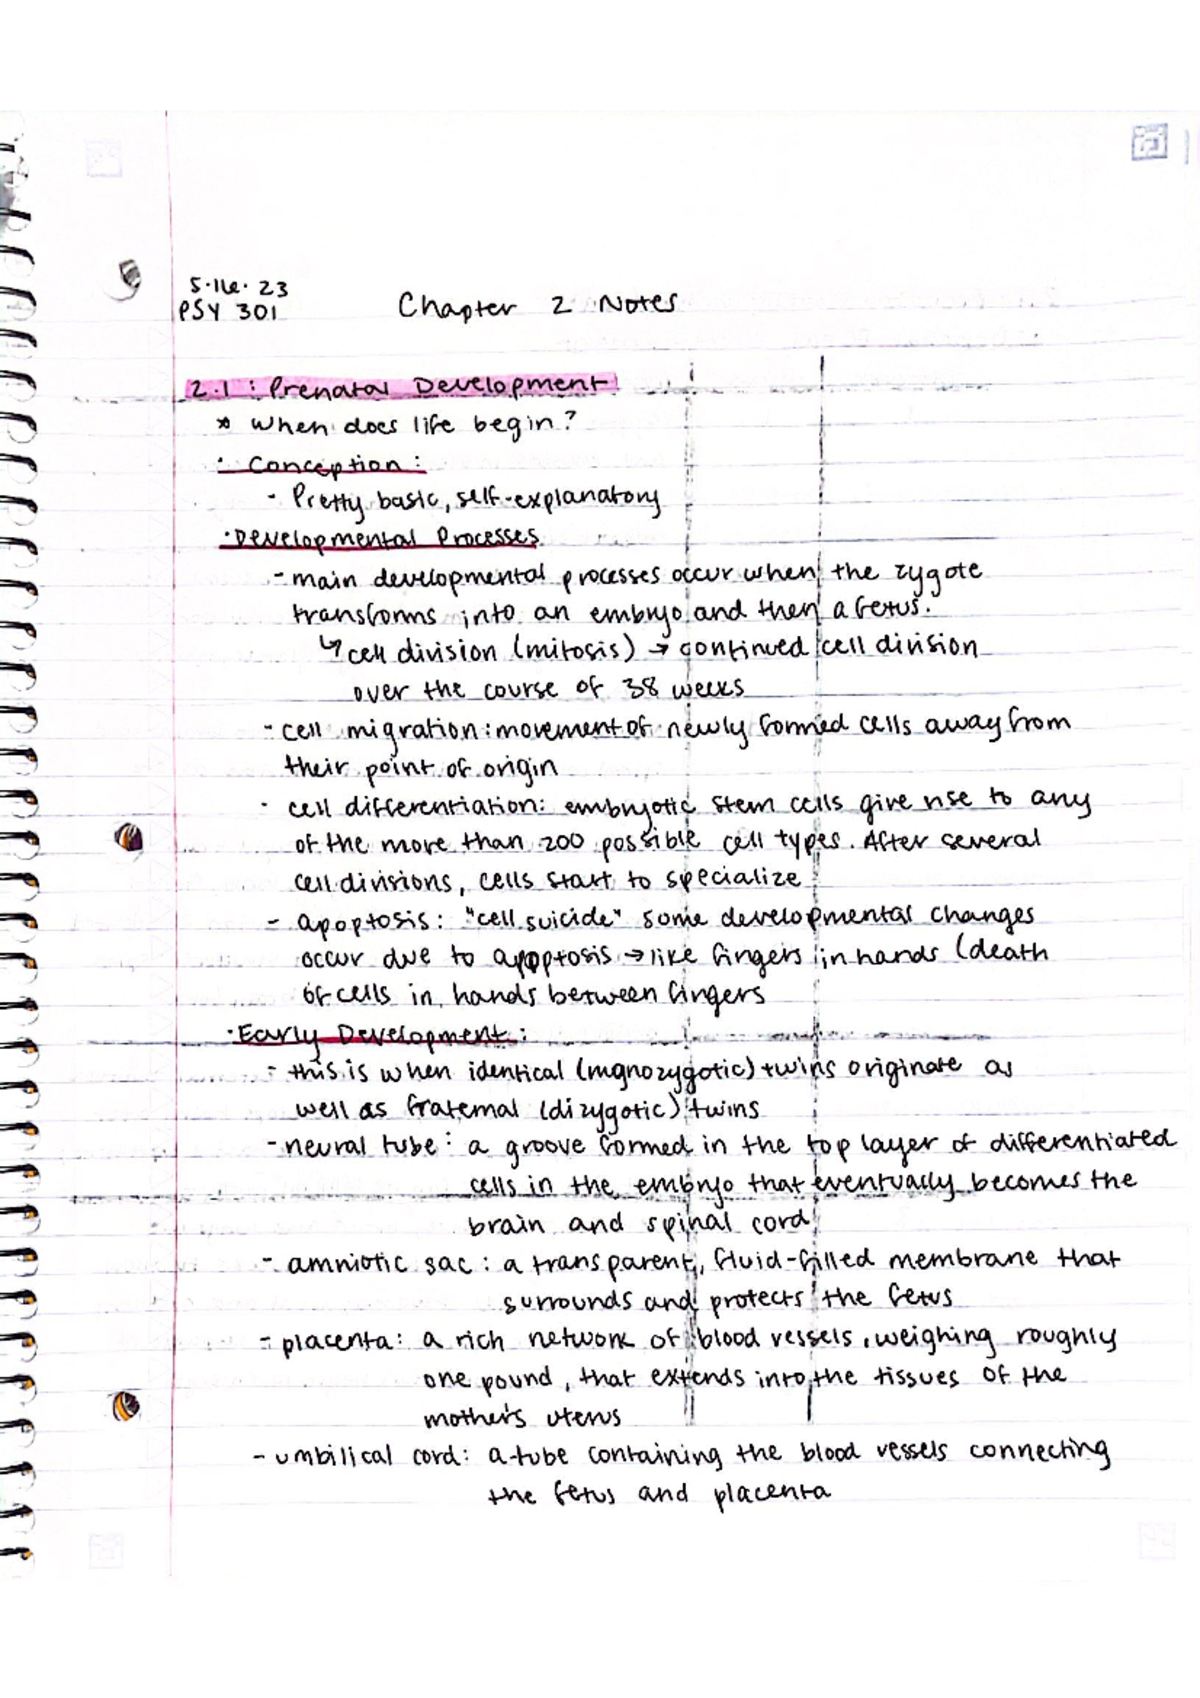 5.16.23
PSY 301 Chapter 2 Notes
2.1 : Prenatal Development
* When does life begin?
· Conception :
- Pretty basic, self-explanatory
· Developmental Processes
- main developmental processes occur when the zygote
transforms into an embryo and then a fetus.
↳ cell division (mitosis) → continued cell division
over the course of 38 weeks
- cell migration: movement of newly formed cells away from
their point of origin
- cell differentiation: embryotic stem cells give rise to any
of the more than 200 possible cell types. After several
cell divisions, cells start to specialize
- apoptosis: "cell suicide" some developmental changes
occur due to apoptosis → like fingers in hands (death
of cells in hands between fingers
· Early Development :
- this is when identical (monozygotic) twins originate as
well as fraternal (dizygotic) twins
- neural tube : a groove formed in the top layer of differentiated
cells in the embryo that eventually becomes the
brain and spinal cord
- amniotic sac : a transparent, fluid-filled membrane that
surrounds and protects the fetus
- placenta: a rich network of blood vessels, weighing roughly
one pound, that extends into the tissues of the
mother's uterus
- umbilical cord: a tube containing the blood vessels connecting
the fetus and placenta